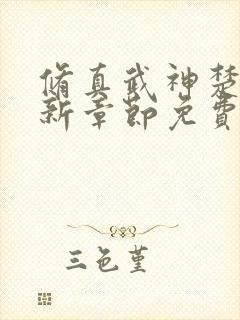 脩真武神楚
新章節免費
三色堇